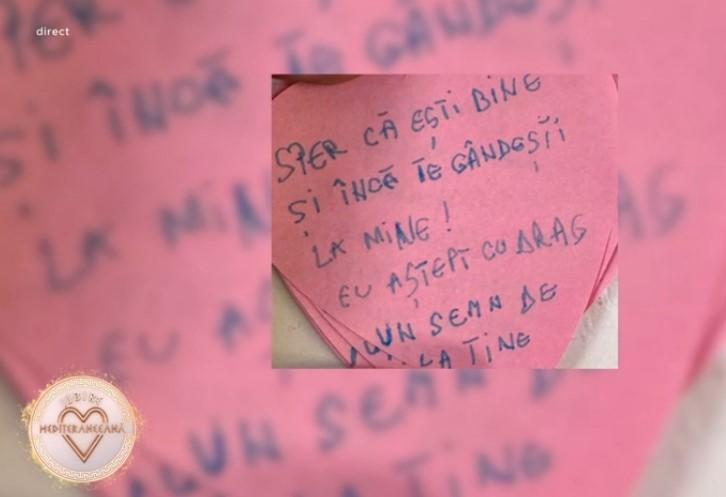 direct
SPER CĂ EȘTI BINE
ȘI ÎNCĂ TE GÂNDEȘTI
LA MINE!
EU AȘTEPT CU DRAG
UN SEMN DE
LA TINE
IUBIRE
MEDITERANEEANĂ